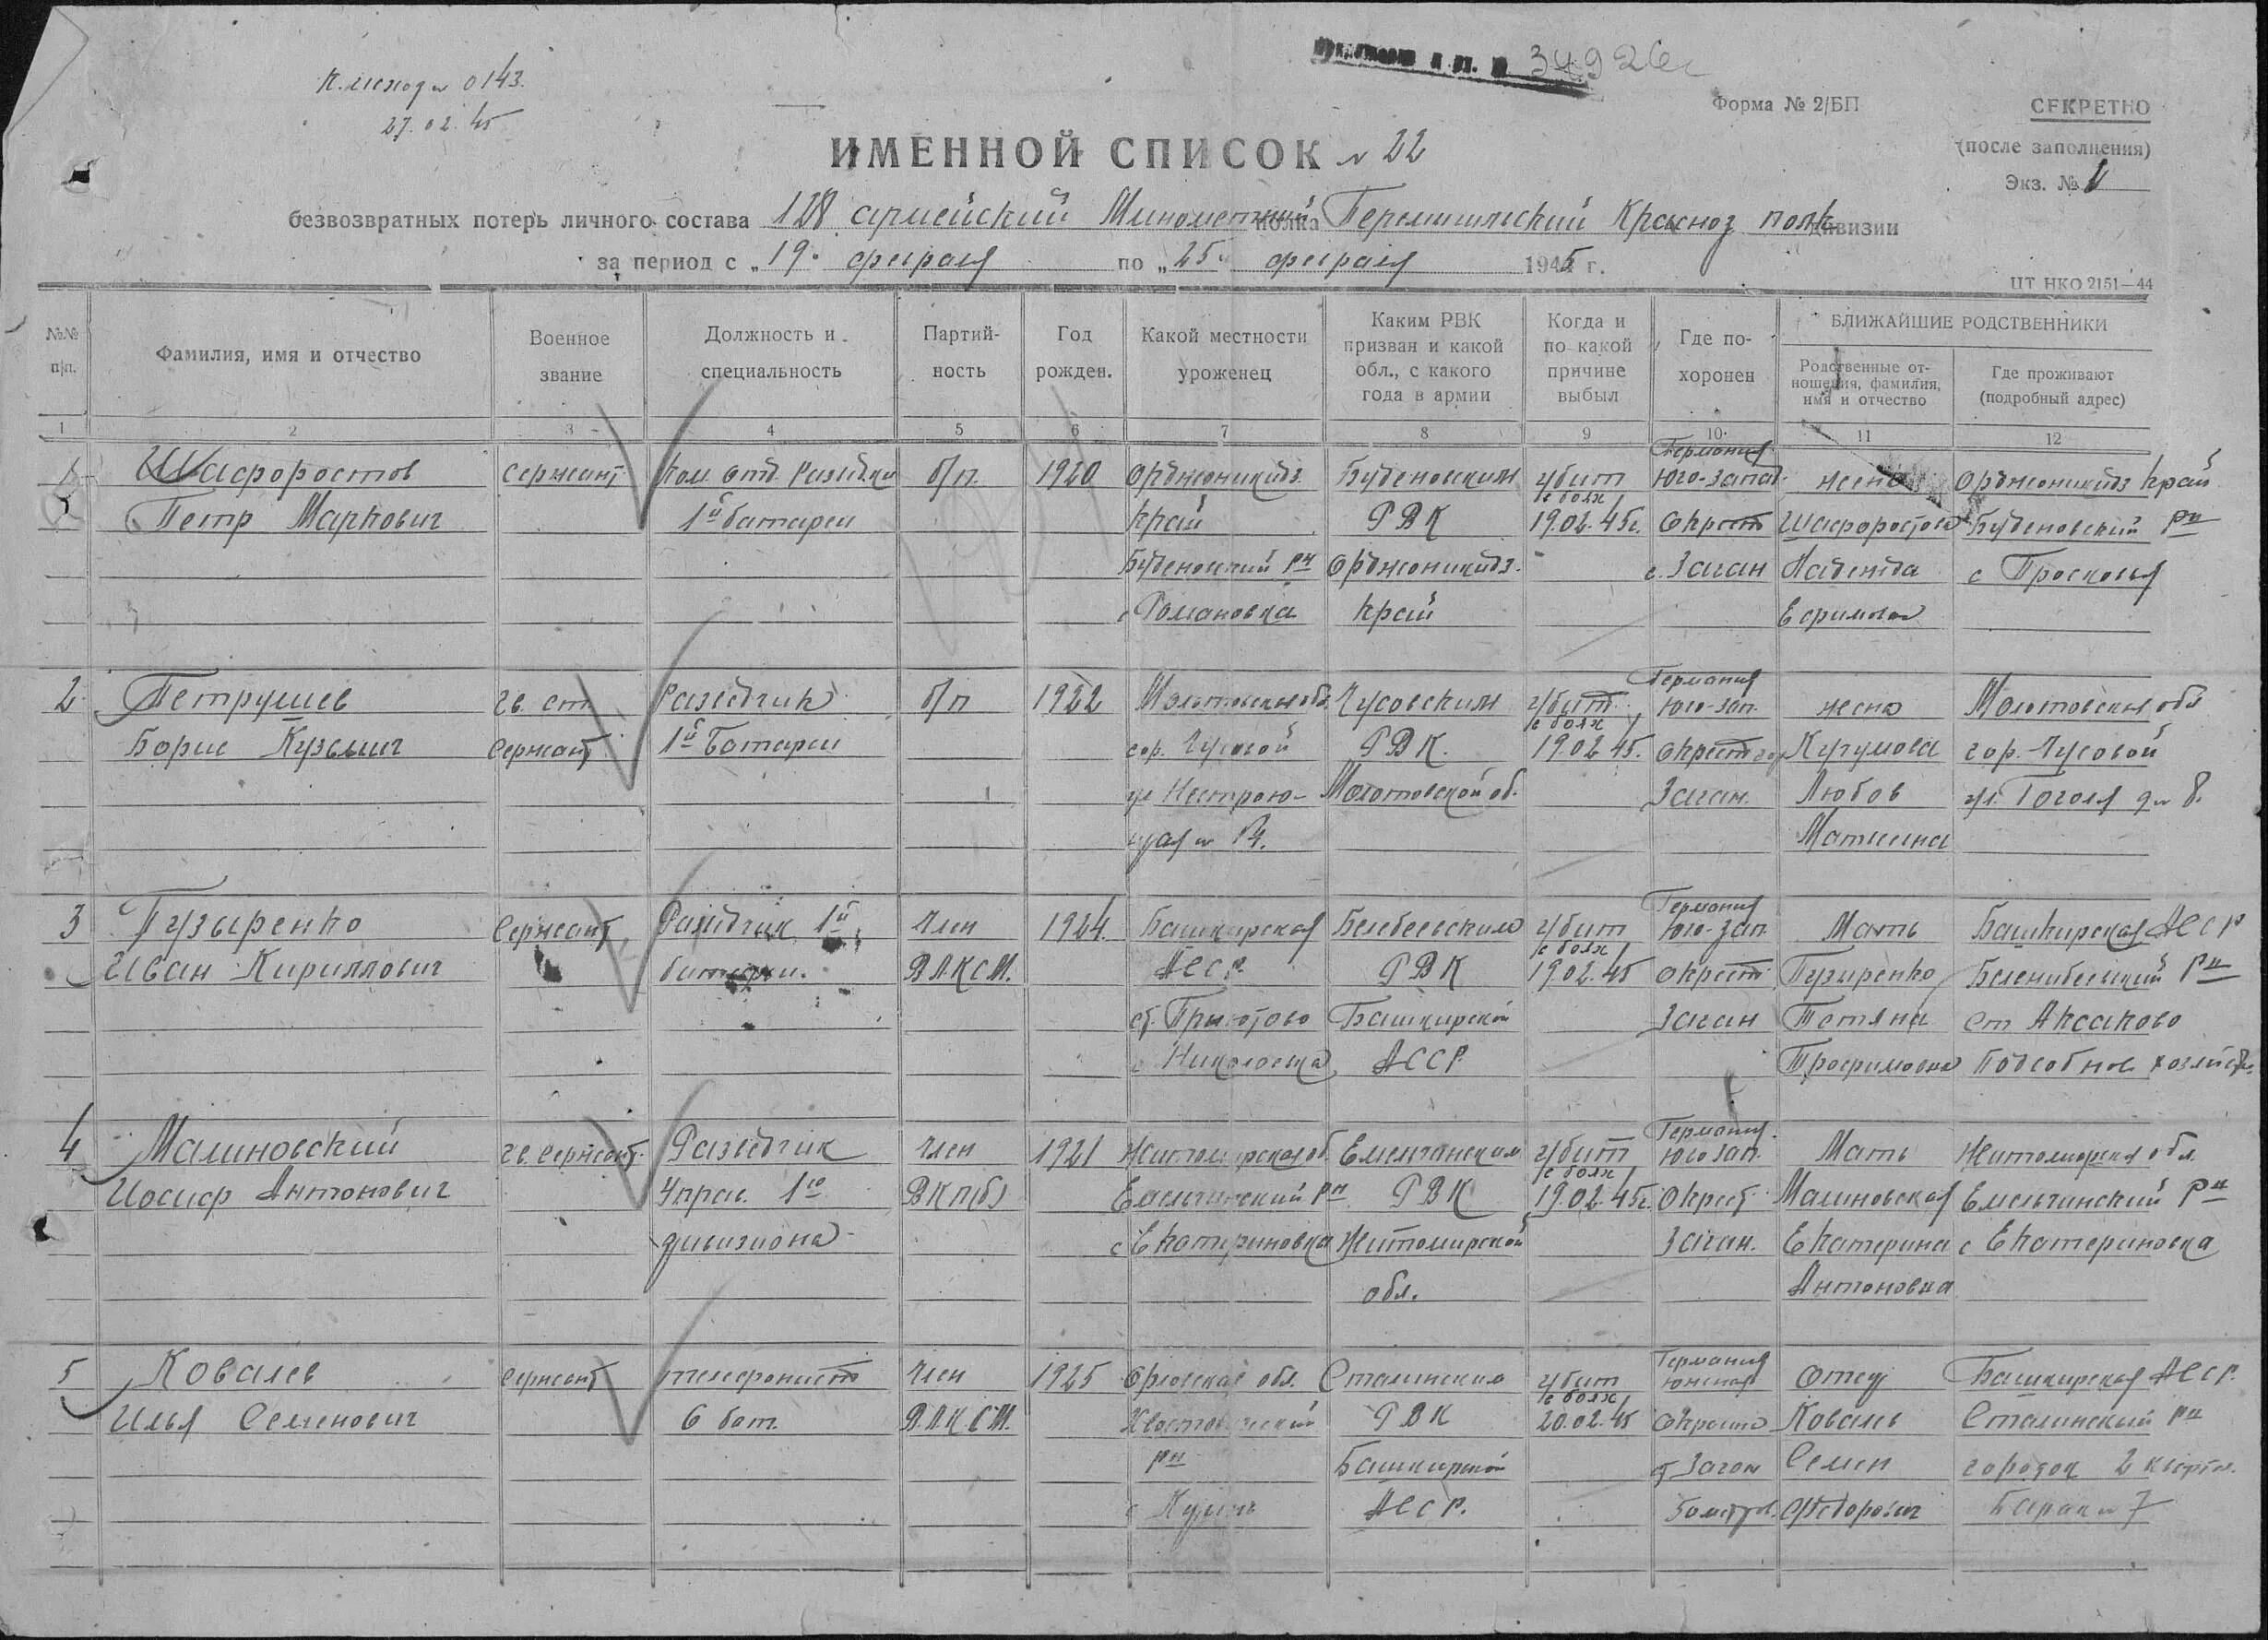 к. исход № 0143.
27.02.45
34926с
Форма № 2/БП
СЕКРЕТНО
(после заполнения)
Экз. № 1
ИМЕННОЙ СПИСОК № 22
безвозвратных потерь личного состава 128 армейский Минометный полка Перемышльский Красноз полк дивизии
за период с „19" февраля по „25" февраля 1945 г.
ЦТ НКО 2151—44
№№ п/п.
Фамилия, имя и отчество
Военное звание
Должность и специальность
Партий-ность
Год рожден.
Какой местности уроженец
Каким РВК призван и какой обл., с какого года в армии
Когда и по какой причине выбыл
Где по-хоронен
БЛИЖАЙШИЕ РОДСТВЕННИКИ
Родственные от-ношения, фамилия, имя и отчество
Где проживают (подробный адрес)
1 2 3 4 5 6 7 8 9 10 11 12
Германия
1 Шафоростов сержант Ком. отд. разведки б/п. 1920 Орджоникидз. Буденовским убит Юго-запад. жена Орджоникидз Край
в боях
Петр Маркович 1й батареи Край РВК 19.02.45г. окрест Шафоростова Буденовский рн
Буденовский рн Орджоникидз. г. Заган Надежда с Просковья
с Романовка Край Ефимовна
Германия
2. Петрушев гв. ст. Разведчик б/п 1922 Молотовская обл. Чусовским убит Юго-зап. жена Молотовская обл
в боях
Борис Кузьмич Сержант 1й Батареи гор. Чусовой РВК. 19.02.45. окрест гор Любов гор. Чусовой
ул Молотовской об. Заган. ул. Гоголя д № 8.
Германия
3 Пузыренко Сержант Разведчик 1й Член 1924. Башкирская Белебеевским убит Юго-зап. Мать Башкирская АССР
в боях
Иван Кириллович батареи. ВЛКСМ. АССР. РВК 19.02.45 окрест Пузыренко рн
ст. Приютово Башкирской Заган Татяна ст Аксаково
АССР. Трофимовна Подсобное хозяйств.
Германия.
4 Малиновский гв. Сержант. Разведчик член 1921 Житомирская об. Емельчанским убит Юго зап. Мать Житомирская обл.
в боях
Иосиф Антонович Управ. 1го ВКП(б) Емельчинский рн РВК 19.02.45г. окрест. Малиновская Емельчинский рн
дивизиона с Екатериновка Житомирской Заган. Екатерина с Екатериновка
обл. Антоновна
Германия
5 Ковалев Сержант телефонист Член 1925 Орловская обл. Сталинским убит отец Башкирская АССР.
в боях
Илья Семенович 6 бат. ВЛКСМ. РВК 20.02.45 Ковалев Сталинский рн
рн Башкирской г Заган Семен городок 2 кварт.
с АССР. Федорович Барак № 7